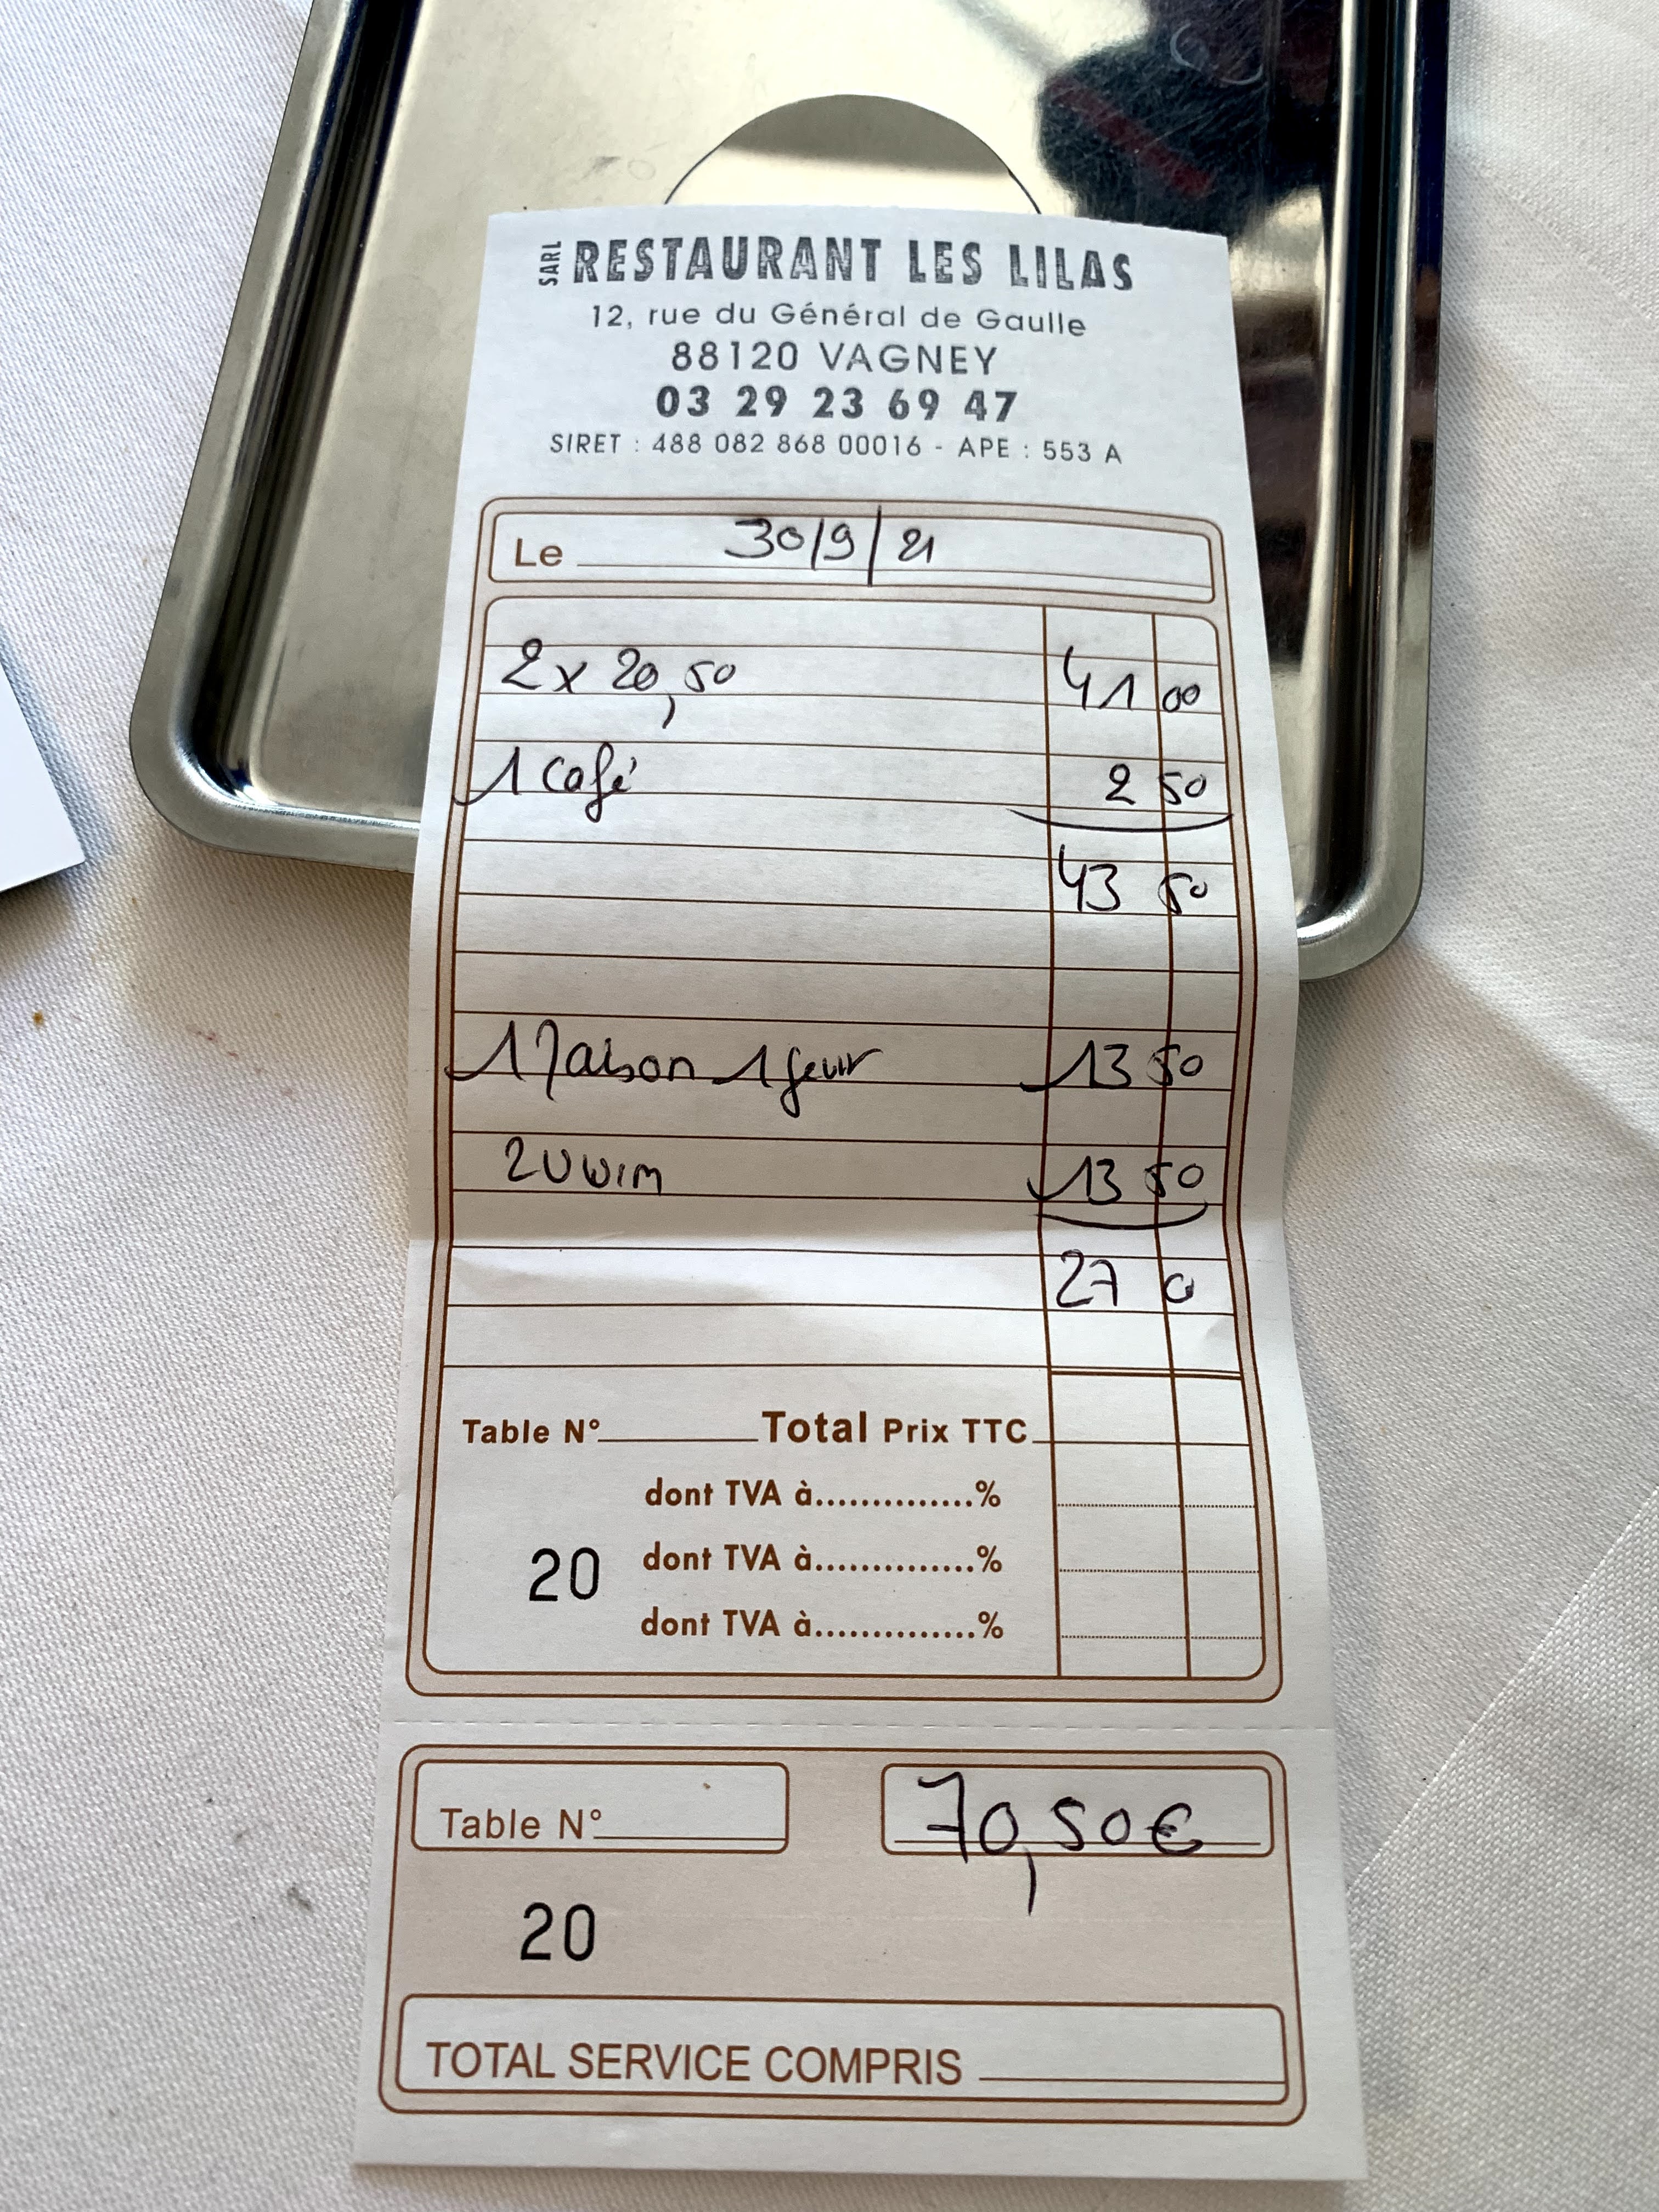 SARL RESTAURANT LES LILAS
12, rue du Général de Gaulle
88120 VAGNEY
03 29 23 69 47
SIRET : 488 082 868 00016 - APE : 553 A
Le 30/9/21
2x 20,50 41 00
1 Café 2 50
43 50
1 1 13 50
2 13 50
27 0
Table N° Total Prix TTC
dont TVA à..............%
20 dont TVA à..............%
dont TVA à..............%
Table N° 70,50€
20
TOTAL SERVICE COMPRIS